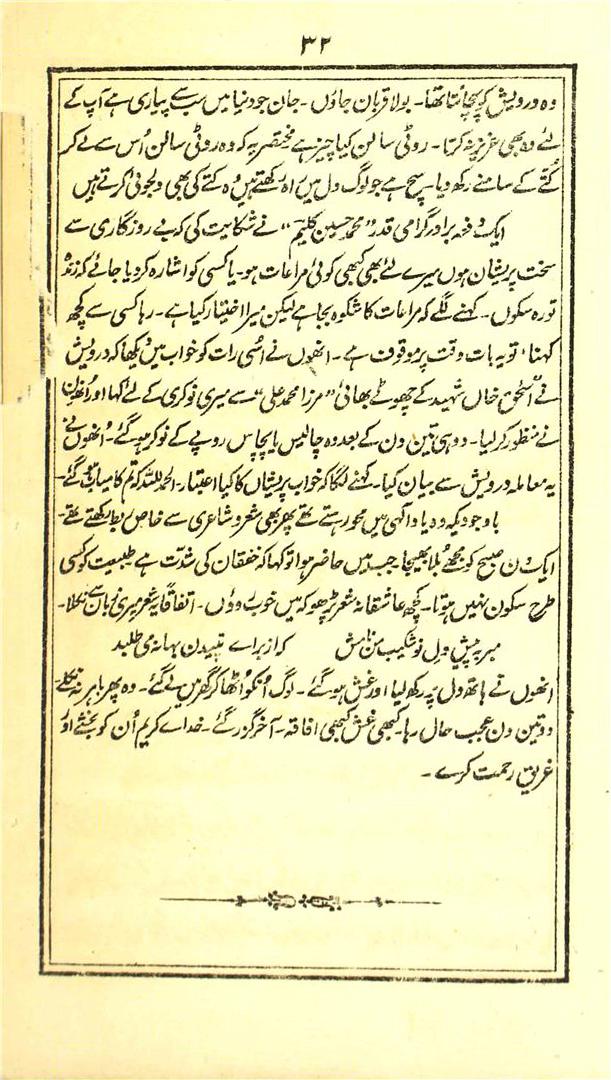 ۳۲
وہ درویش کو پہچانتا تھا۔ بولا قربان جاؤں۔ جان جو دنیا میں سب سے پیاری ہے آپ کے
لئے وہ بھی عزیز نہ کرتا۔ روٹی سالن کیا چیز ہے مختصر یہ کہ وہ روٹی سالن اُس سے لے کر
کُتّے کے سامنے رکھ دیا۔ سچ ہے جو لوگ دل میں راہ رکھتے ہیں وہ کتے کی بھی دلجوئی کرتے ہیں
ایک دفعہ برادر گرامی قدر "محمد حسین کلیم" نے شکایت کی کہ بے روزگاری سے
سخت پریشان ہوں میرے لئے بھی کبھی کوئی مراعات ہو۔ یا کسی کو اشارہ کر دیا جائے کہ زندہ
تو رہ سکوں۔ کہنے لگے کہ مراعات کا شکوہ بجا ہے لیکن میرا اختیار کیا ہے۔ رہا کسی سے کچھ
کہنا، تو یہ بات وقت پر موقوف ہے۔ انھوں نے اُسی رات کو خواب میں دیکھا کہ درویش
نے اسحٰق خاں شہید کے چھوٹے بھائی "مرزا محمد علی" سے میری نوکری کے لئے کہا اور اُنھوں
نے منظور کر لیا۔ دو ہی تین دن کے بعد وہ چالیس یا پچاس روپے کے نوکر ہو گئے۔ اُنھوں نے
یہ معاملہ درویش سے بیان کیا۔ کہنے لگا کہ خواب پریشاں کا کیا اعتبار۔ الحمد للہ کہ تم کامیاب ہو گئے۔
باوجودیکہ وہ یاد الٰہی میں محو رہتے تھے پھر بھی شعر و شاعری سے خاص ربط رکھتے تھے۔
ایک دن صبح کو مجھے بلا بھیجا۔ جب میں حاضر ہوا تو کہا کہ خفقان کی شدت ہے طبیعت کو کسی
طرح سکون نہیں ہوتا۔ کچھ عاشقانہ شعر پڑھو کہ میں خوب روؤں۔ اتفاقاً یہ شعر میری زبان سے نکلا۔
مبر بہ پیش دل نو شکیب من نامش کہ از براے تپیدن بہانہ می طلبد
انھوں نے ہاتھ دل پہ رکھ لیا اور غش ہو گئے۔ لوگ اُنکو اُٹھا کر گھر میں لے گئے۔ وہ پھر باہر نہ نکلے
دو تین دن عجب حال رہا۔ کبھی غش کبھی افاقہ۔ آخر گذر گئے۔ خداے کریم اُن کو بخشے اور
غریق رحمت کرے۔